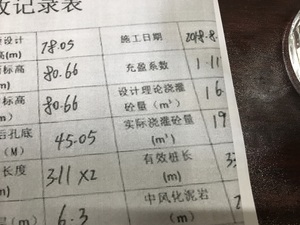 收记录表
设计 78.05 施工日期 2018.8.
高(m)
标高 80.66 充盈系数 1.11
(m)
标高 80.66 设计理论浇灌 16
(m) 砼量 (m³)
后孔底 45.05 实际浇灌砼量 19
(M) (m³)
长度 3.11×2 有效桩长 33
(m) (m)
(m) 6.3 中风化泥岩 2
(m)